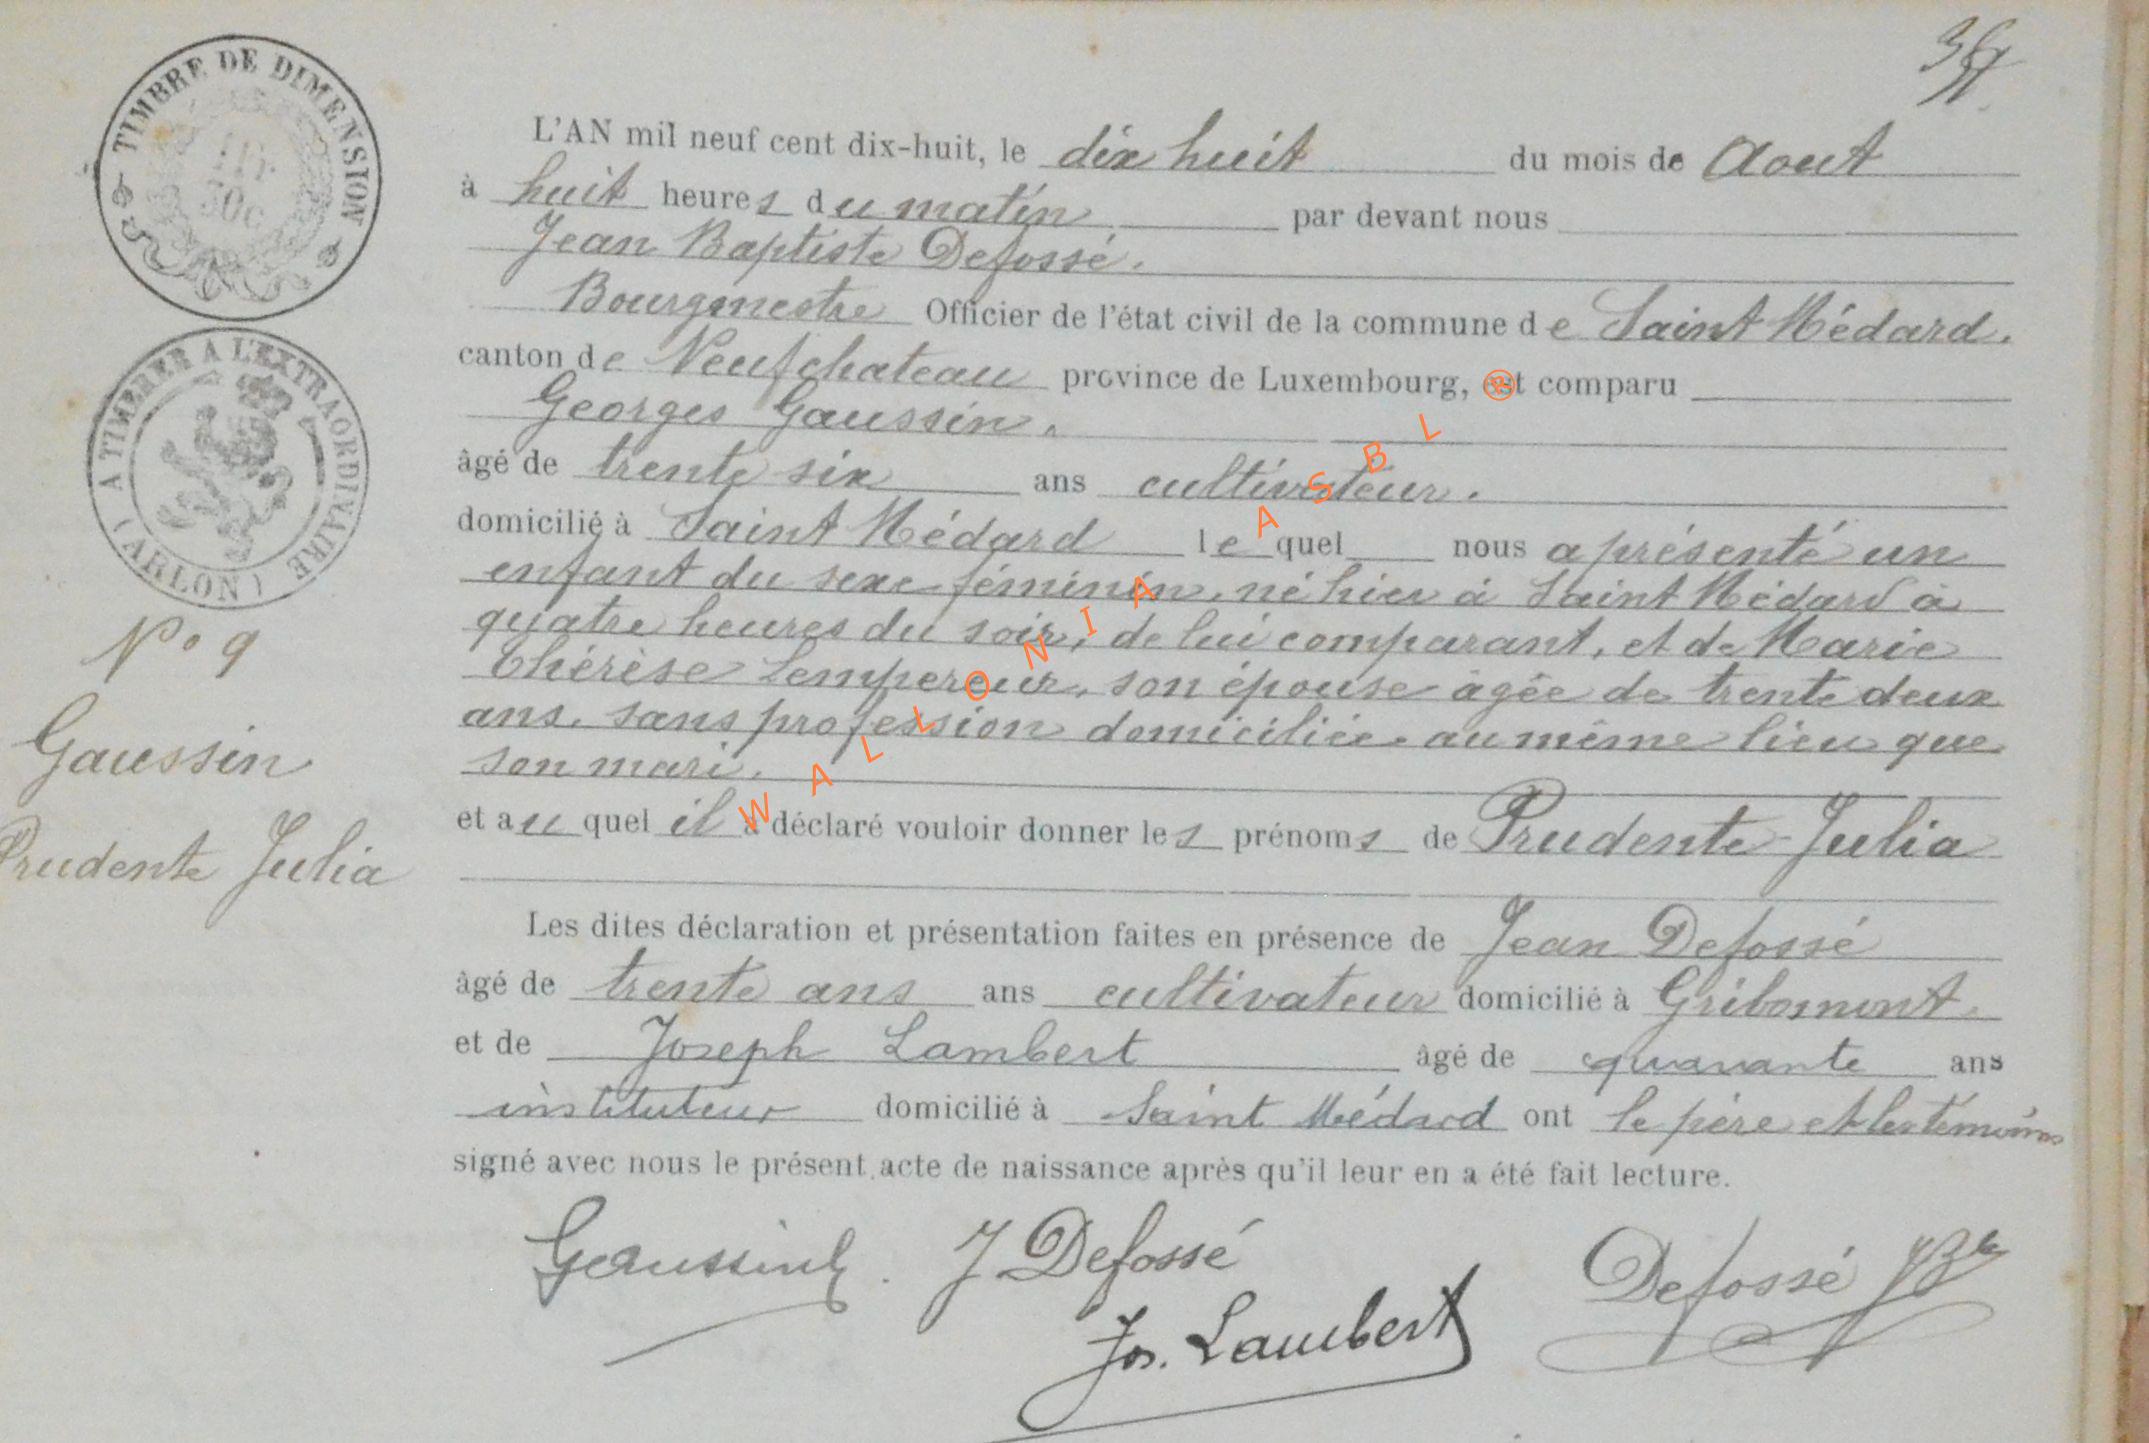 TIMBRE DE DIMENSION
A TIMBRER A L'EXTRAORDINAIRE
( ARLON )
N° 9
Gaussin
Prudente Julia
L'AN mil neuf cent dix-huit, le dix huit du mois de Aout
à huit heures du matin par devant nous
Jean Baptiste Defossé.
Bourgmestre Officier de l'état civil de la commune de Saint Médard.
canton de Neufchateau province de Luxembourg, est comparu
Georges Gaussin.
âgé de trente six ans cultivateur.
domicilié à Saint Médard le quel nous a présenté un
enfant du sexe féminin, né hier à Saint Médard à
quatre heures du soir, de lui comparant, et de Marie
Thérèse Lempereur, son épouse âgée de trente deux
ans, sans profession domiciliée au même lieu que
son mari.
et au quel il a déclaré vouloir donner les prénoms de Prudente-Julia
Les dites déclaration et présentation faites en présence de Jean Defossé
âgé de trente ans ans cultivateur domicilié à Gribomont.
et de Joseph Lambert âgé de quarante ans
instituteur domicilié à Saint Médard ont le père et les témoins
signé avec nous le présent acte de naissance après qu'il leur en a été fait lecture.
Gaussin J Defossé
Jos. Lambert
Defossé
WALLONIA ASBL ®